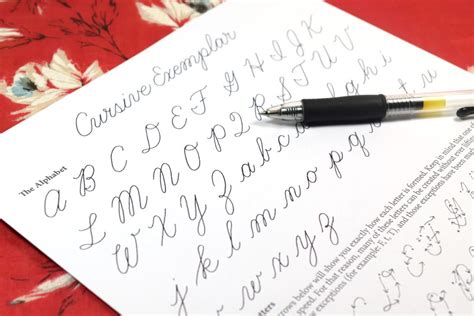 Cursive Exemplar
The Alphabet
A B C D E F G H I J K
L M N O P Q R S T U V
W X Y Z a b c d g h i
j k l m n o p q r t u
w x y z
rrows below will show you exactly how each letter is formed. Keep in mind that one
speed. For that reason, many of these letters can be created without ever lifting
exceptions (for example: F, I, T), and those exceptions have been
tters